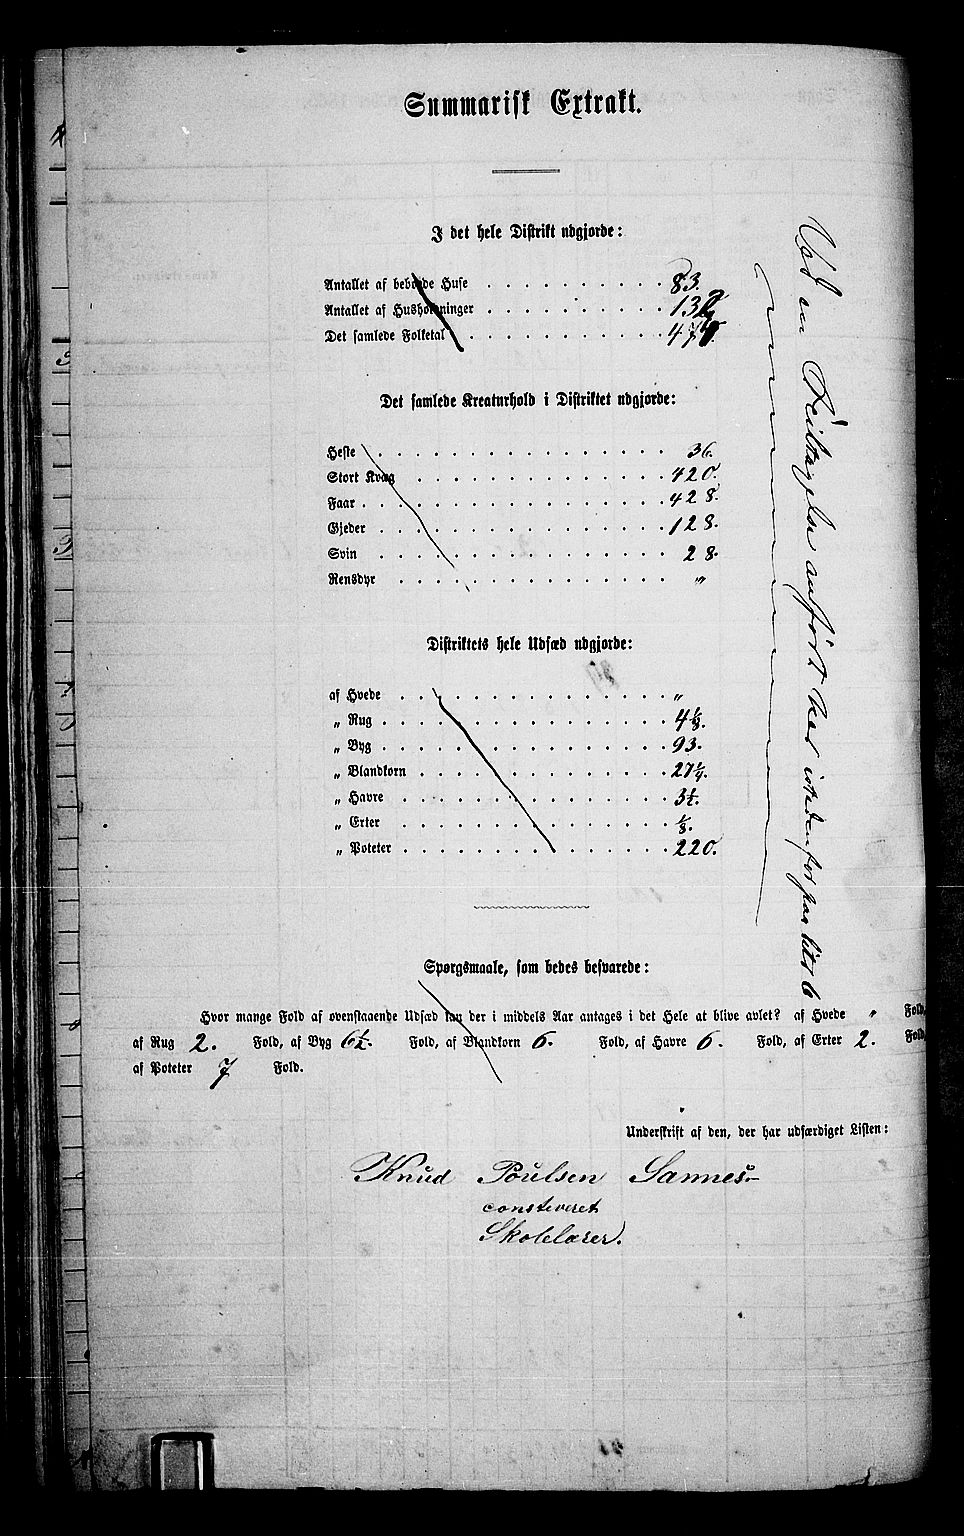 Summarisk Extrakt.
I det hele Distrikt udgjorde:
Antallet af bebo̸ede Huse . . . . . . . . . . 83.
Antallet af Husholdninger . . . . . . . . . .
Det samlede Folketal . . . . . . . . . . .
Det samlede Kreaturhold i Distriktet udgjorde:
Heste . . . . . . . . . . . . . . 36.
Stort Kvæg . . . . . . . . . . . . 420.
Faar . . . . . . . . . . . . . . 428.
Gjeder . . . . . . . . . . . . . . 128.
Svin . . . . . . . . . . . . . . 28.
Rensdyr . . . . . . . . . . . . . „
Distriktets hele Udsæd udgjorde:
af Hvede . . . . . . . . . . . . „
„ Rug . . . . . . . . . . . . . 4 1/8.
„ Byg . . . . . . . . . . . . . 93.
„ Blandkorn . . . . . . . . . . . 27 1/4.
„ Havre . . . . . . . . . . . . 3 1/2.
„ Erter . . . . . . . . . . . . 1/8.
„ Poteter . . . . . . . . . . . . 220.
Spørgsmaale, som bedes besvarede:
Hvor mange Fold af ovenstaaende Udsæd kan der i middels Aar antages i det Hele at blive avlet? af Hvede „ Fold,
af Rug 2. Fold, af Byg 6 1/2. Fold, af Blandkorn 6. Fold, af Havre 6. Fold, af Erter 2. Fold,
af Poteter 7 Fold.
Underskrift af den, der har udfærdiget Listen:
Knud Poulsen Sannes.
consteveret
Skolelærer.
Ved en Feiltagelse anført her istedenfor paa litr 6